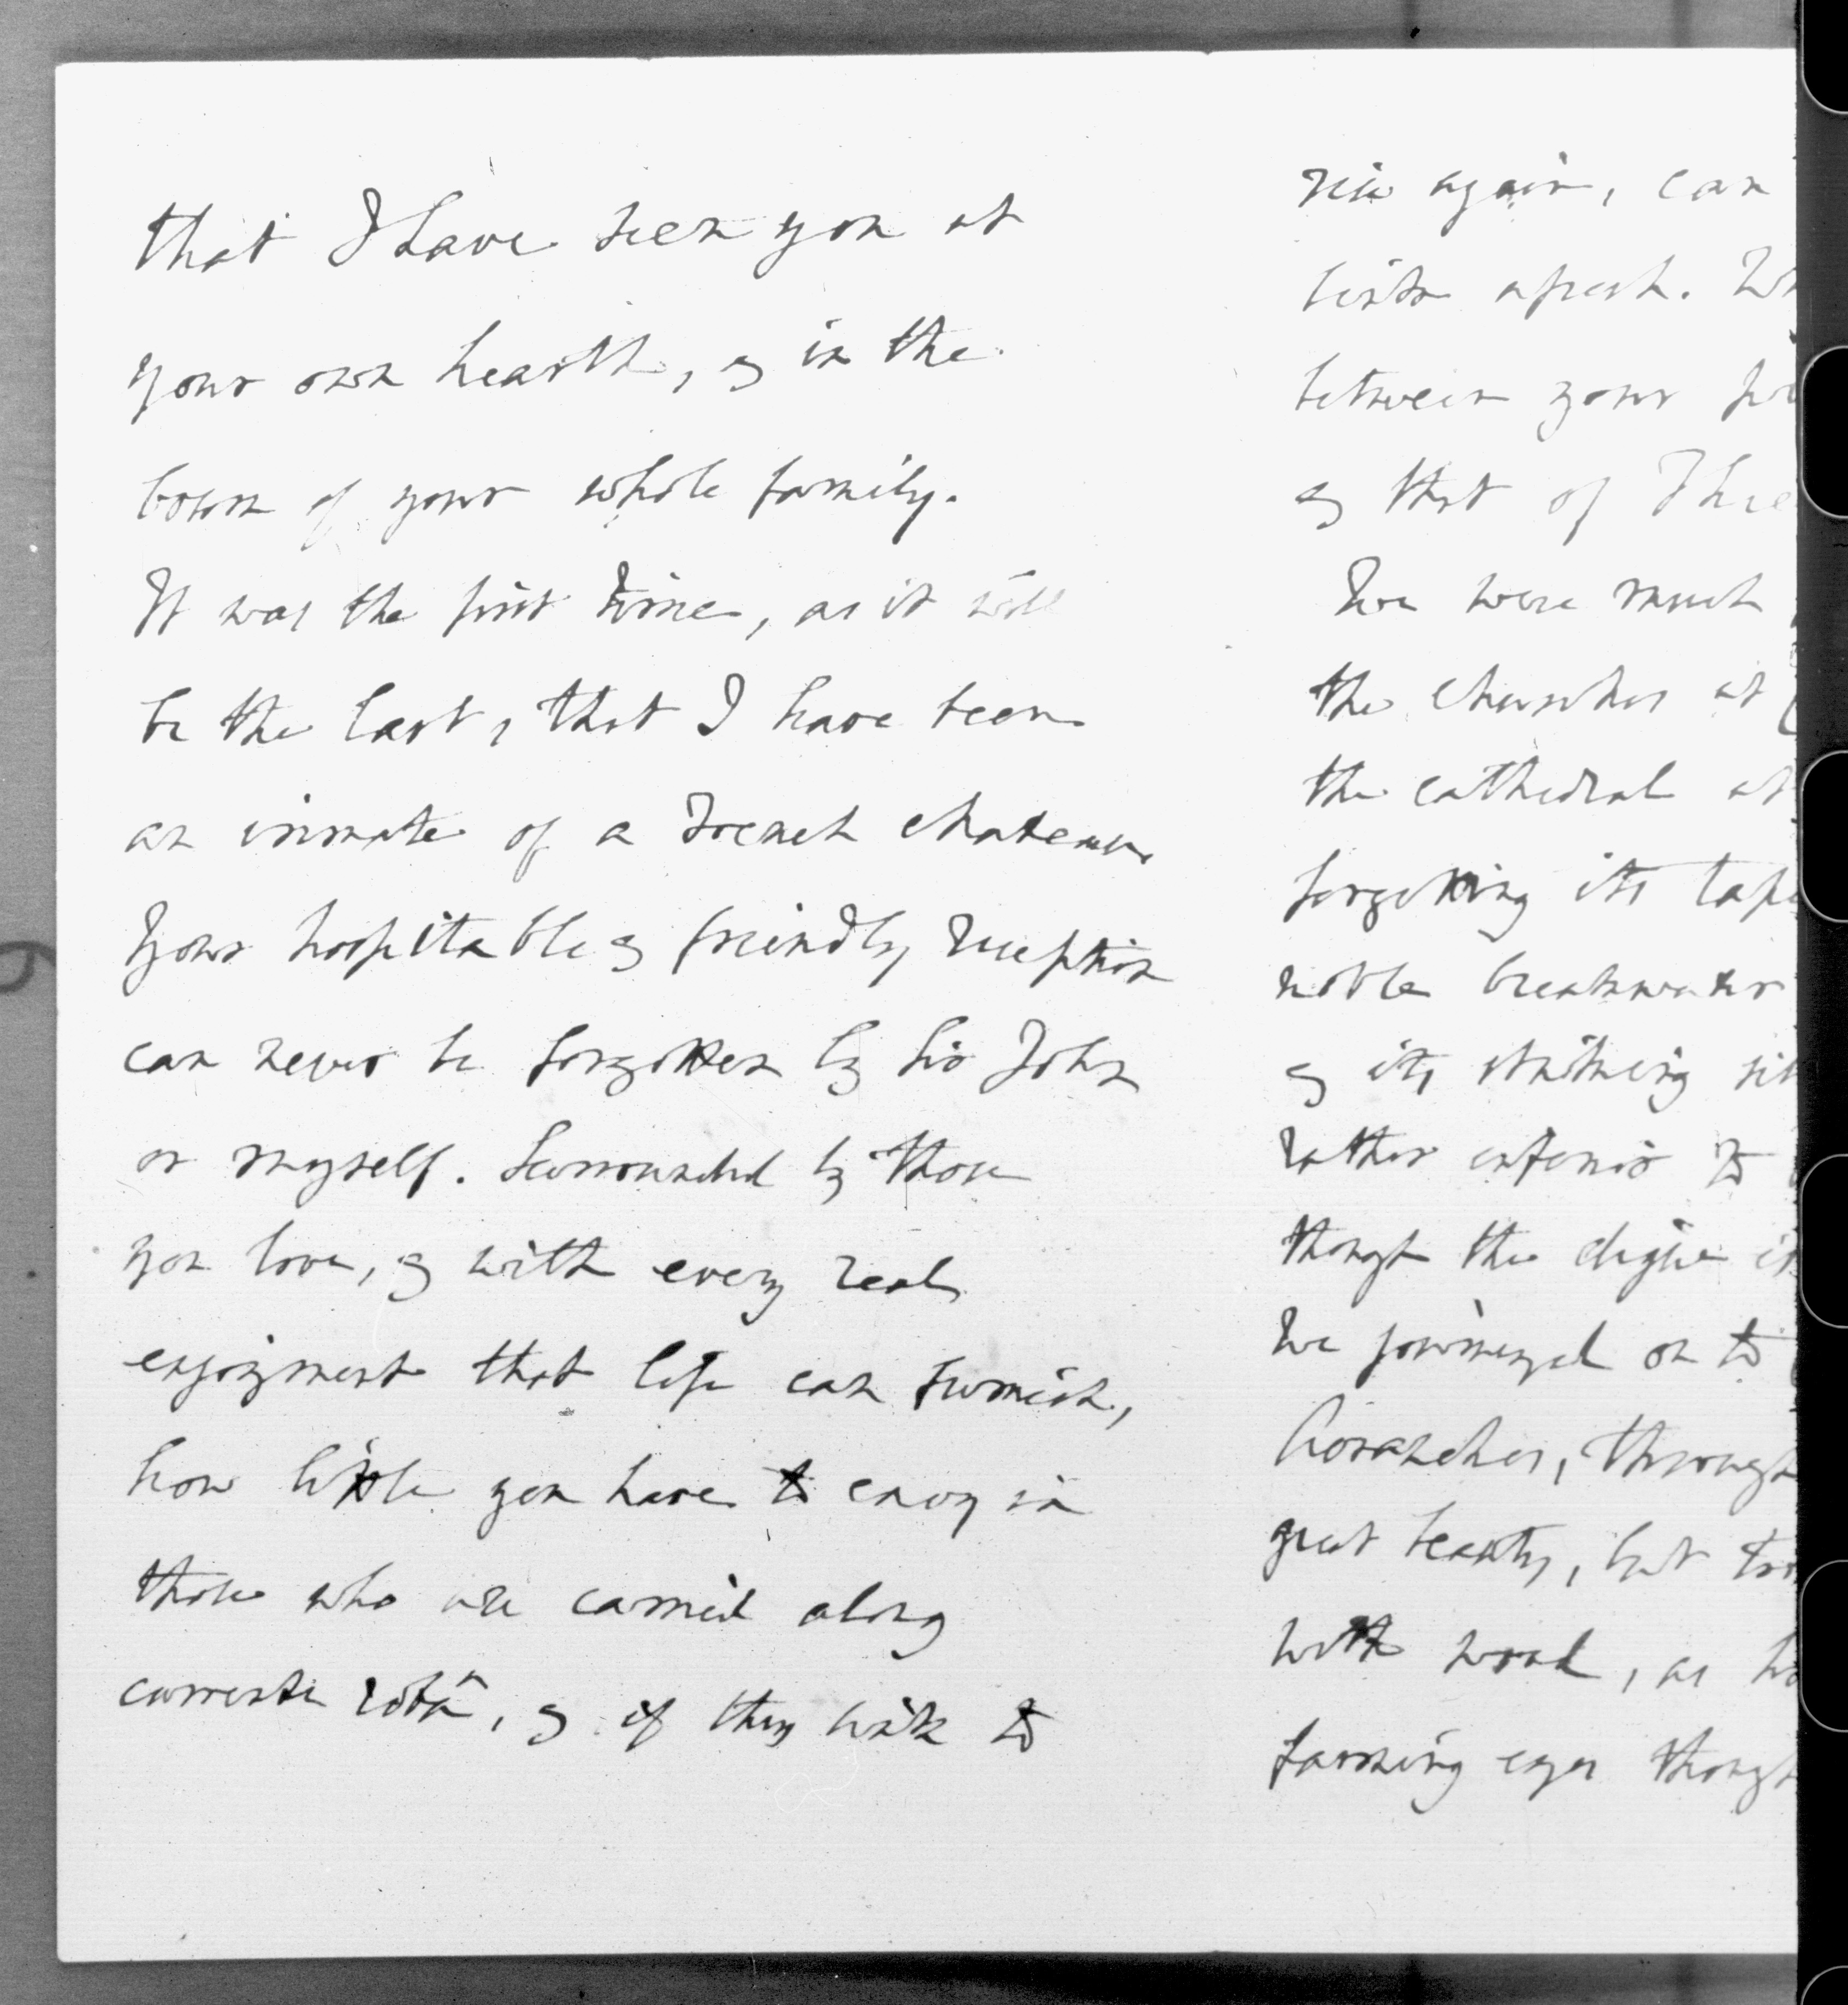 that I have seen you at
your own hearth, & in the
bosom of your whole family.
It was the first time, as it will
be the last, that I have been
an inmate of a French chateau.
Your hospitable & friendly reception
can never be forgotten by Sir John
or myself. Surrounded by those
you love, & with every real
enjoyment that life can furnish,
how little you have to envy in
those who are carried along
currente rotâ, & if they sink to
rise again, can
between your
& that of
We were much
the churches at
the cathedral at
forgetting its
noble breakwater
& its striking
rather inferior to
though the
We journeyed on to
Avranches, through
great beauty, but
with wood, as
farming eyes though